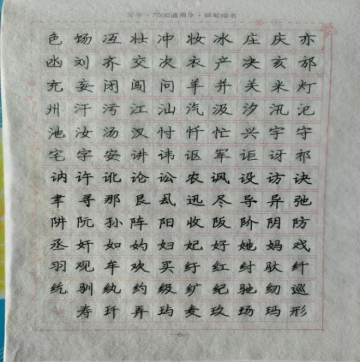 色饧冱壮冲妆冰庄庆亦
刘齐交次衣产决亥邡
充妄闭闯问羊并关米灯
州汗污江汕汐汲汐汛汜
池汝汤汉忖忏忙兴宇守
宅字安讲讳讴军讵讶祁
讷许讹论讼农讽设访诀
聿寻那艮厾迅尽导异弛
阱阮孙阵阳收阪阶阴防
丞奸如妁妇妃好她妈戏
羽观牟欢买纡红纣驮纤
纥驯纨约级纩纪驰纫巡
寿玕弄玙麦玖玚玛形